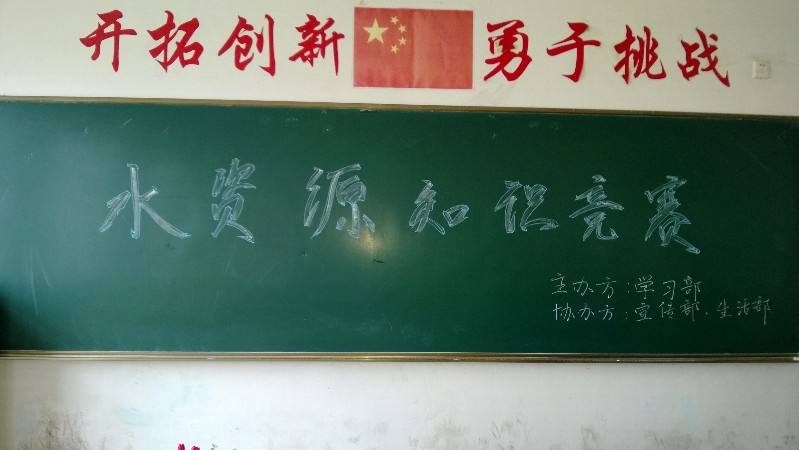 开拓创新 勇于挑战
水资源知识竞赛
主办方:学习部
协办方:宣传部、生活部